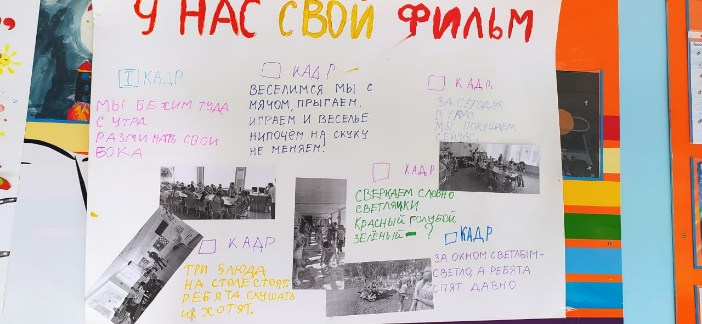 У НАС СВОЙ ФИЛЬМ
1 КАДР
МЫ БЕЖИМ ТУДА
С УТРА
РАЗМИНАТЬ СВОИ
БОКА
КАДР
ВЕСЕЛИМСЯ МЫ С
МЯЧОМ, ПРЫГАЕМ,
ИГРАЕМ И ВЕСЕЛЬЕ
НИПОЧЁМ НА СКУКУ
НЕ МЕНЯЕМ!
КАДР
МЫ ПОКУШАЕМ
КАДР
СВЕРКАЕМ СЛОВНО
СВЕТЛЯЧКИ
КРАСНЫЙ ГОЛУБОЙ
ЗЕЛЁНЫЙ - ?
КАДР
ТРИ БЛЮДА
НА СТОЛЕ СТОЯТ
РЕБЯТА СКУШАТЬ
ИХ ХОТЯТ.
КАДР
ЗА ОКНОМ СВЕТЛЫМ-
СВЕТЛО, А РЕБЯТА
СПЯТ ДАВНО